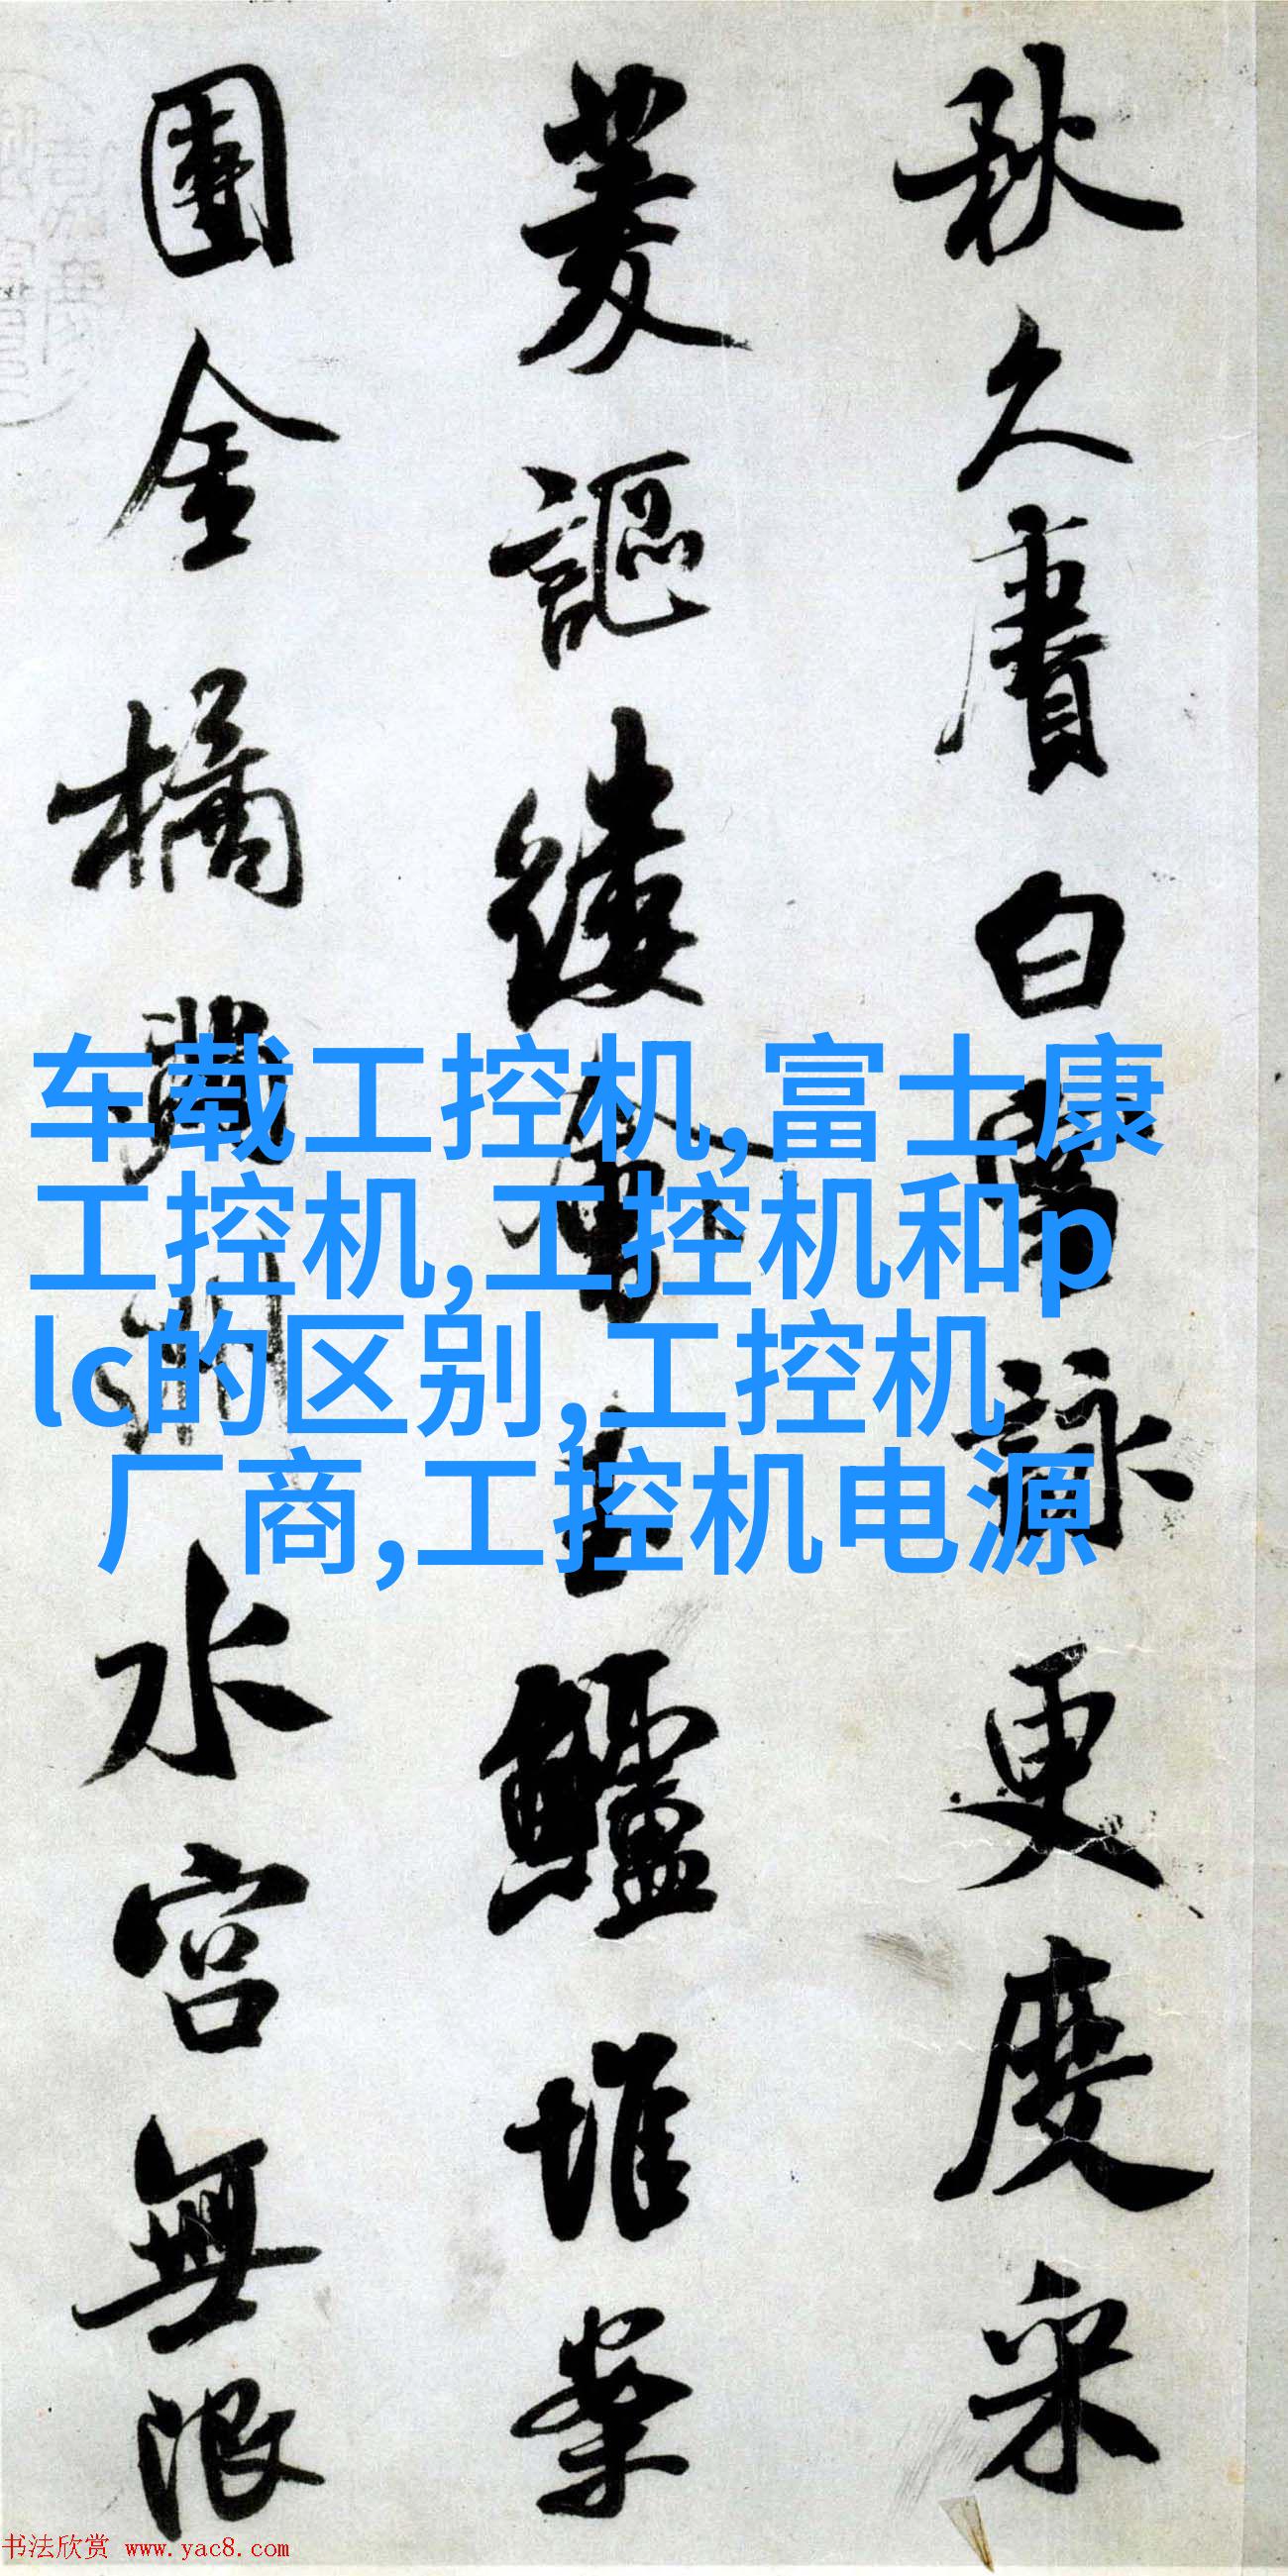 秋久賡白雪詠更度采
菱謳縷玉鱸堆案
團金橘滿洲水宮無限
车载工控机,富士康
工控机,工控机和p
lc的区别,工控机
厂商,工控机电源
书法欣赏 www.yac8.com